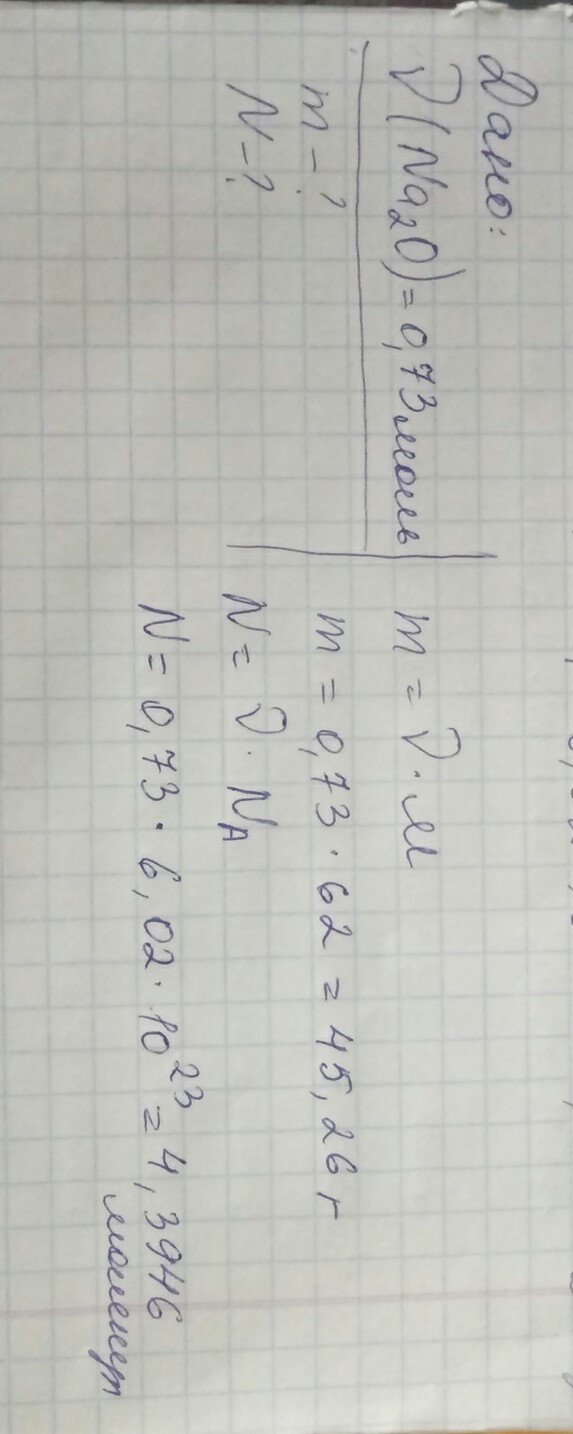 Дано:
ν(Na₂O)=0,73моль
m-?
N-?
m = ν·M
m = 0,73·62 = 45,26 г
N = ν·Nᴀ
N = 0,73·6,02·10²³ = 4,3946
молекул